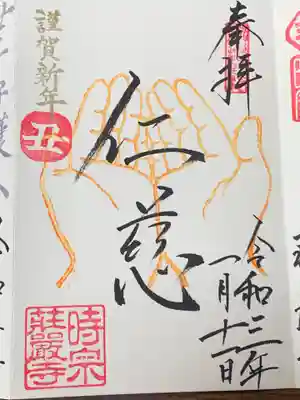 奉拝
仁慈
令和三年
一月十一日
謹賀新年
丑
時宗
莊嚴寺